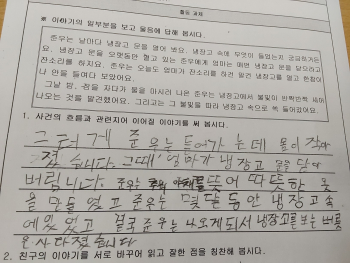 활동 과제
※ 이야기의 앞부분을 보고 물음에 답해 봅시다.
준우는 날마다 냉장고 문을 열어 봐요. 냉장고 속에 무엇이 들었는지 궁금하거든
요. 냉장고 문을 오랫동안 열고 있는 준우에게 엄마는 매번 냉장고 문을 닫으라고
잔소리를 하지요. 준우는 오늘도 엄마가 잔소리를 하건 말건 냉장고를 열고 한참이
나 안을 들여다 보았어요.
그날 밤, 잠을 자다가 물을 마시러 나온 준우는 냉장고에서 불빛이 반짝반짝 새어
나오는 것을 발견했어요. 그리고는 그 불빛을 따라 냉장고 속으로 쑥 들어갔어요.
1. 사건의 흐름과 관련지어 이어질 이야기를 써 봅시다.
그런데 준우는 들어가는데 몸이 작아
졌습니다. 그때 엄마가 냉장고 문을 닫아
버립니다. 준우는 뜯어 따뜻한 옷
을 만들었고 준우는 몇달 동안 냉장고속
에있었고 결국 준우는 나오게되서 냉장고를보는버릇
은 사라졌습니다
2. 친구의 이야기를 서로 바꾸어 읽고 잘한 점을 칭찬해 봅시다.